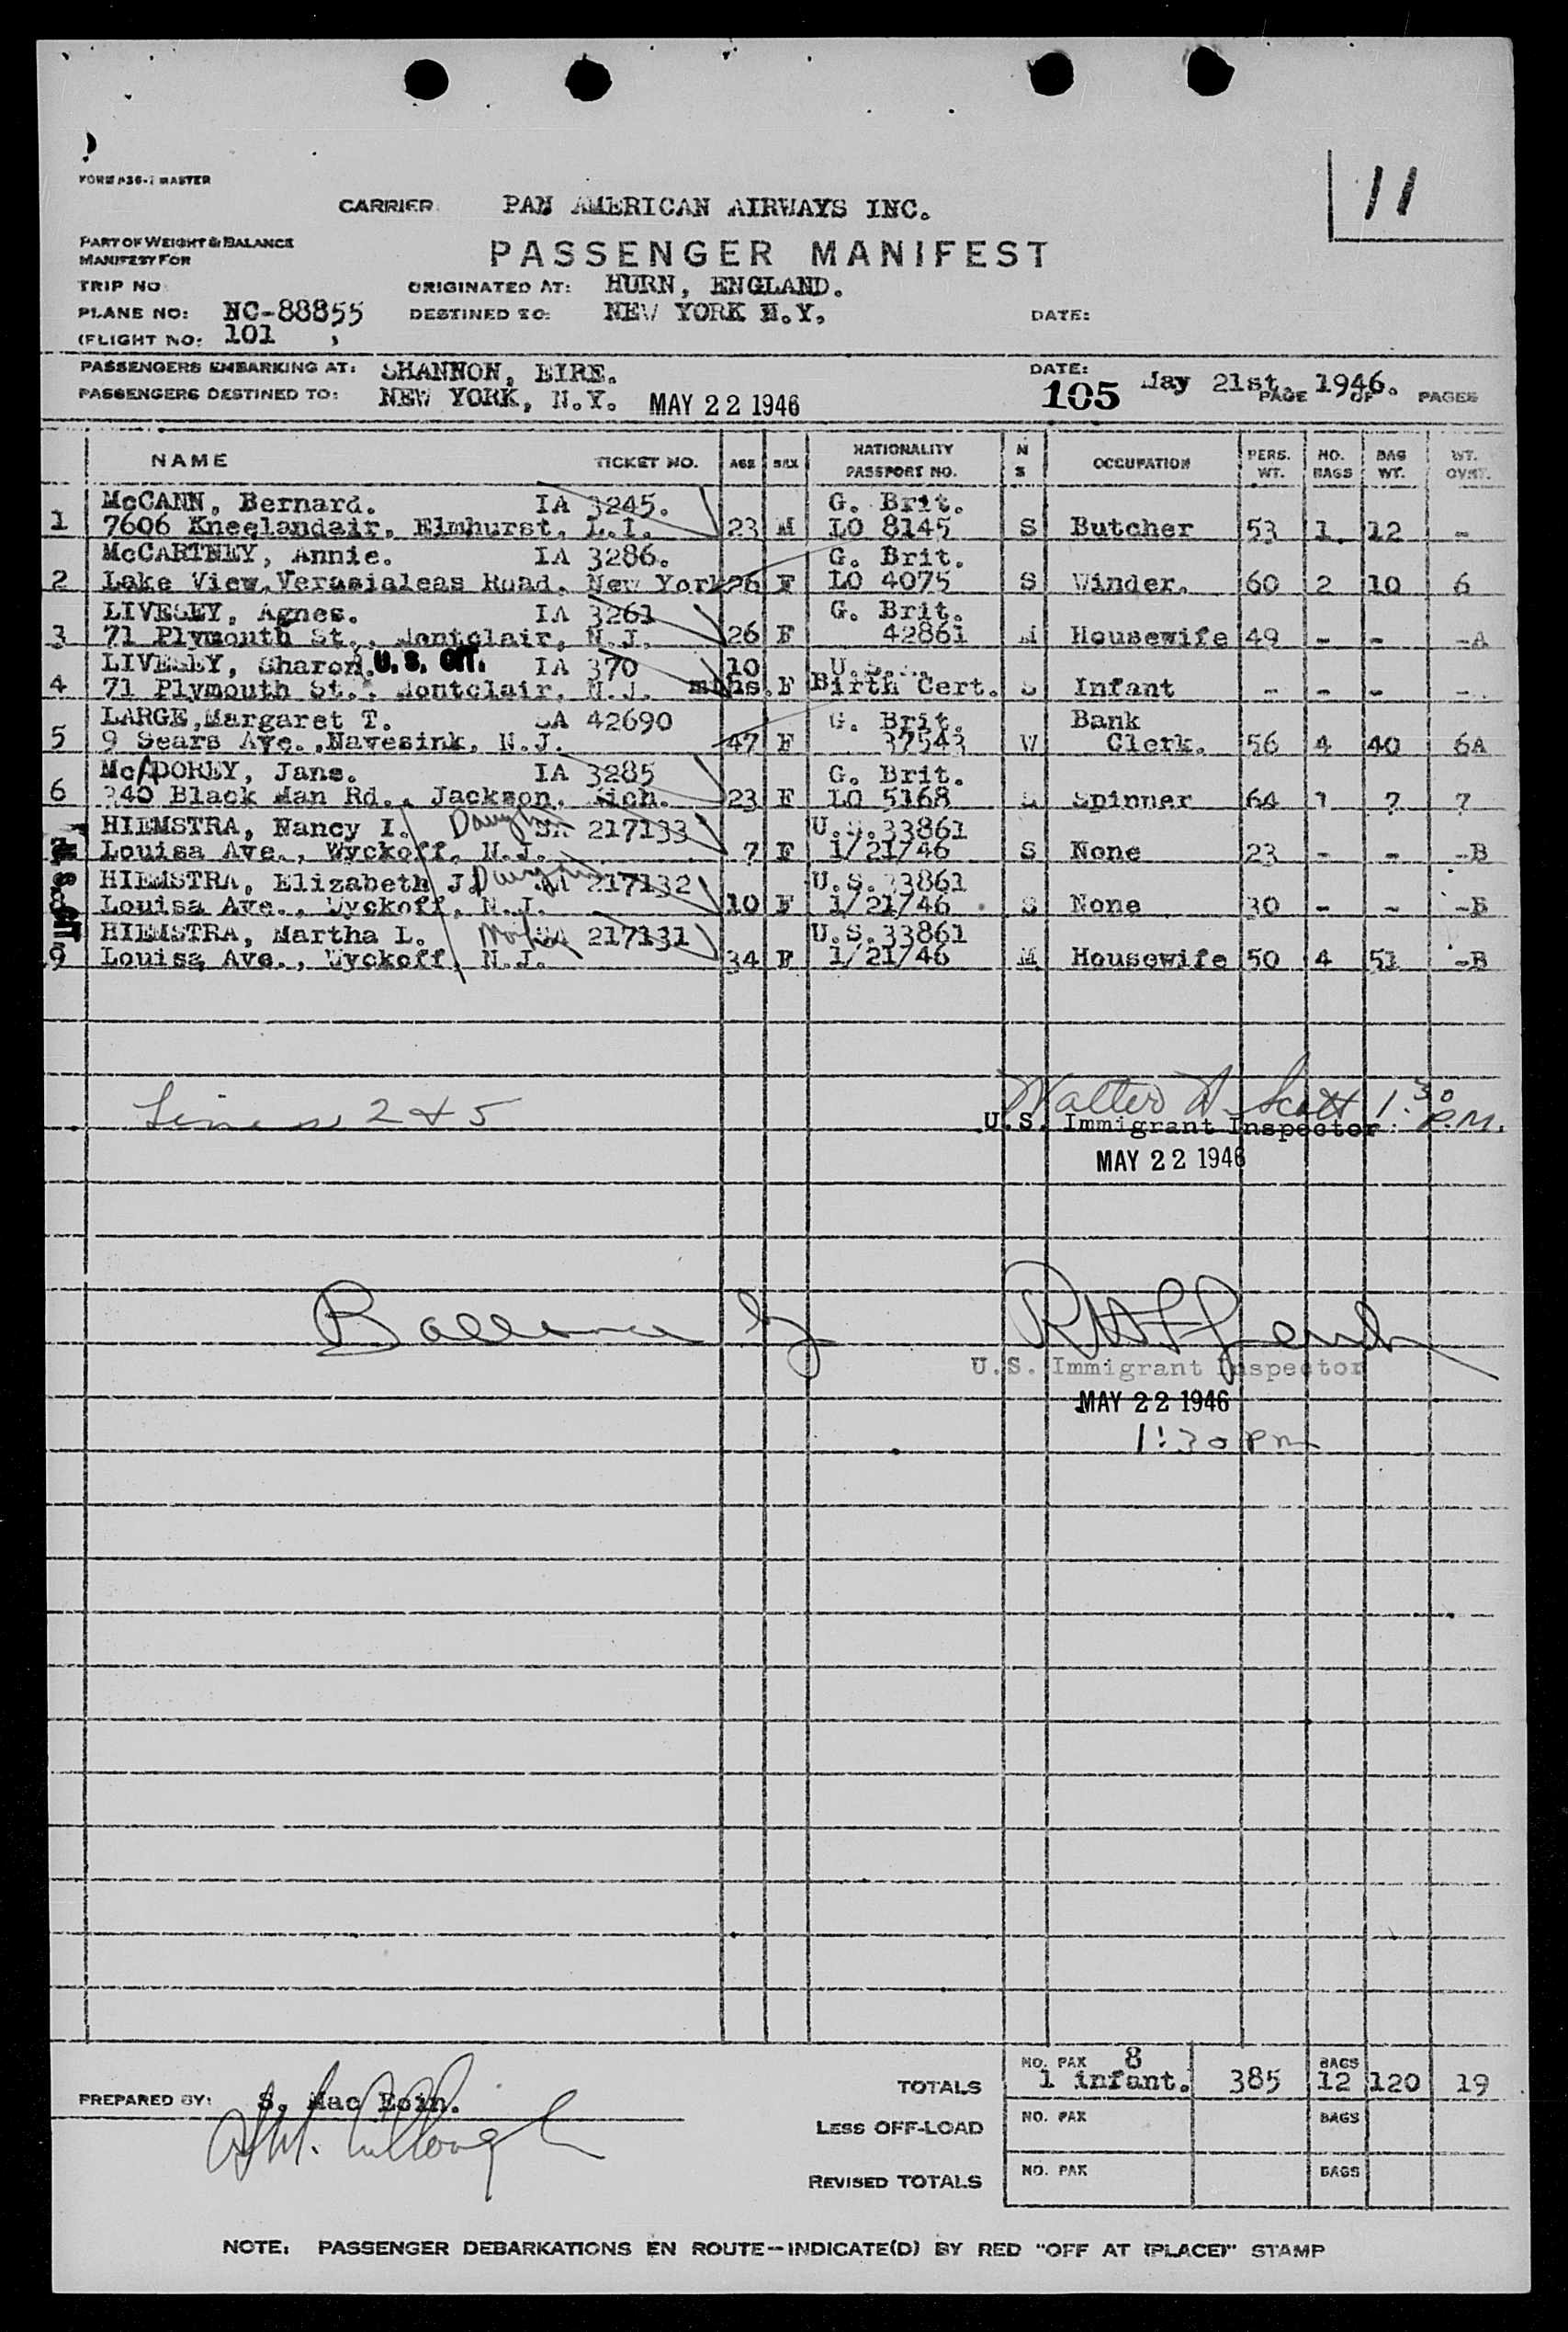 11
FORM #36-1 MASTER
CARRIER PAN AMERICAN AIRWAYS INC.
PART OF WEIGHT & BALANCE
MANIFEST FOR
PASSENGER MANIFEST
TRIP NO ORIGINATED AT: HURN, ENGLAND.
PLANE NO: NC-88855 DESTINED TO: NEW YORK N.Y. DATE:
(FLIGHT NO: 101
PASSENGERS EMBARKING AT: SHANNON, EIRE. DATE: May 21st. 1946.
PASSENGERS DESTINED TO: NEW YORK, N.Y. MAY 22 1946 105 PAGE OF PAGES
NAME TICKET NO. AGE SEX NATIONALITY PASSPORT NO. M S OCCUPATION PERS. WT. NO. BAGS BAG WT. WT. OVWT.
McCANN, Bernard. IA 3245. G. Brit.
1 7606 Kneelandair, Elmhurst, L.I. 23 M LO 8145 S Butcher 53 1. 12 -
McCARTNEY, Annie. IA 3286. G. Brit.
2 Lake View, Verasialeas Road, New York 26 F LO 4075 S Winder. 60 2 10 6
LIVESEY, Agnes. IA 3261 G. Brit.
3 71 Plymouth St., Montclair, N.J. 26 F 42861 M Housewife 49 - - -A
LIVESEY, Sharon. U.S. CIT. IA 370 10 U.S.
4 71 Plymouth St., Montclair, N.J. mths. F Birth Cert. S Infant - - - -
LARGE, Margaret T. 42690 G. Brit. Bank
5 9 Sears Ave., Navesink, N.J. 47 F 37543 W Clerk. 56 4 40 6A
McADOREY, Jane. IA 3285 G. Brit.
6 340 Black Man Rd., Jackson, Mich. 23 F LO 5168 S Spinner 64 1 7 7
HIEMSTRA, Nancy I. Daughter 217133 U.S.33861
Louisa Ave., Wyckoff, N.J. 7 F 1/21/46 S None 23 - - -B
HIEMSTRA, Elizabeth J. Daughter 217132 U.S.33861
8 Louisa Ave., Wyckoff, N.J. 10 F 1/21/46 S None 30 - - -B
HIEMSTRA, Martha L. Mother 217131 U.S.33861
9 Louisa Ave., Wyckoff, N.J. 34 F 1/21/46 M Housewife 50 4 51 -B
U.S. CIT.
Lines 2 & 5 Walter A. Scott 1:30 P.M.
U.S. Immigrant Inspector
MAY 22 1946
Balance by
U.S. Immigrant Inspector
MAY 22 1946
1:30 pm
TOTALS NO. PAX 8 1 infant. 385 BAGS 12 120 19
PREPARED BY: S. Mac Eoin.
LESS OFF-LOAD NO. PAX BAGS
REVISED TOTALS NO. PAX BAGS
NOTE: PASSENGER DEBARKATIONS EN ROUTE--INDICATE(D) BY RED "OFF AT (PLACE)" STAMP